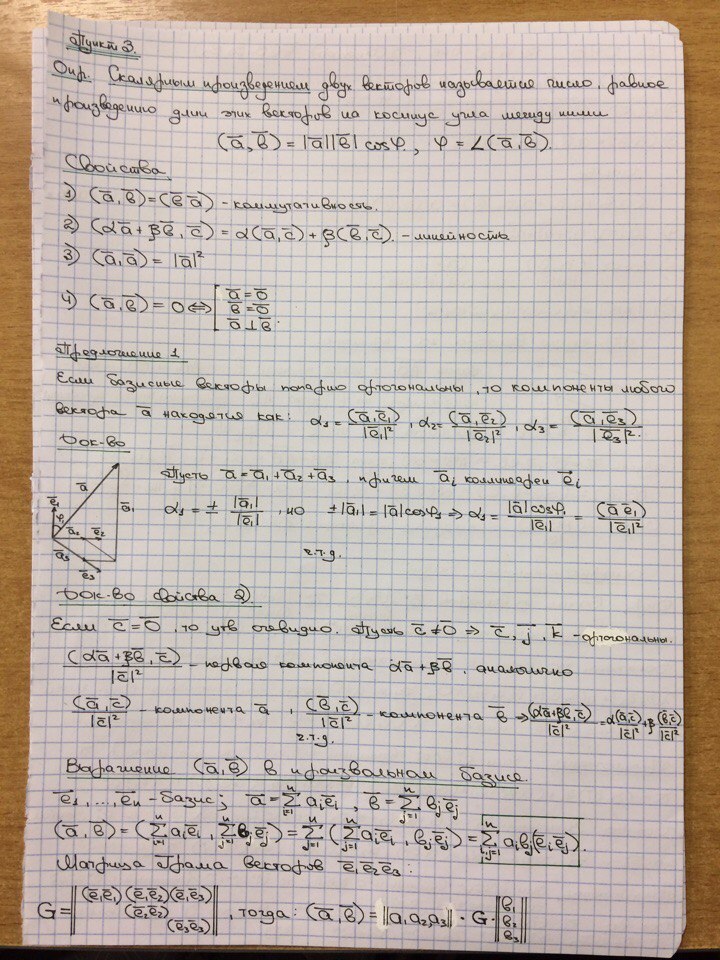 Пункт 3.
Опр. Скалярным произведением двух векторов называется число, равное
произведению длин этих векторов на косинус угла между ними
(a̅, b̅) = |a̅||b̅| cosφ, φ = ∠(a̅, b̅).
Свойства
1) (a̅, b̅) = (b̅ a̅) - коммутативность.
2) (αa̅ + βb̅, c̅) = α(a̅, c̅) + β(b̅, c̅). - линейность
3) (a̅, a̅) = |a̅|²
4) (a̅, b̅) = 0 ⇔ [ a̅ = 0̅
b̅ = 0̅
a̅ ⊥ b̅.
Предложение 1
Если базисные векторы попарно ортогональны, то компоненты любого
вектора a̅ находятся как: α₁ = (a̅, e̅₁)/|e̅₁|², α₂ = (a̅, e̅₂)/|e̅₂|², α₃ = (a̅, e̅₃)/|e̅₃|².
Док-во
a̅ e̅₁ φ a̅₁ a̅₂ e̅₂ a̅₃ e̅₃
Пусть a̅ = a̅₁ + a̅₂ + a̅₃, причем a̅ᵢ коллинеарен e̅ᵢ
α₁ = ± |a̅₁|/|e̅₁|, но ±|a̅₁| = |a̅| cosφ₁ ⇒ α₁ = |a̅| cosφ₁/|e̅₁| = (a̅ e̅₁)/|e̅₁|²
ч.т.д.
Док-во свойства 2)
Если c̅ = 0̅, то утв очевидно. Пусть c̅ ≠ 0̅ ⇒ c̅, j̅, k̅ - ортогональны.
(αa̅ + βb̅, c̅)/|c̅|² - первая компонента αa̅ + βb̅, аналогично
(a̅, c̅)/|c̅|² - компонента a̅, (b̅, c̅)/|c̅|² - компонента b̅ ⇒ (αa̅ + βb̅, c̅)/|c̅|² = α(a̅, c̅)/|c̅|² + β(b̅, c̅)/|c̅|²
ч.т.д.
Выражение (a̅, b̅) в произвольном базисе.
e̅₁, ..., e̅ₙ - базис; a̅ = ∑ᵢ₌₁ⁿ aᵢe̅ᵢ, b̅ = ∑ⱼ₌₁ⁿ bⱼe̅ⱼ
(a̅, b̅) = (∑ᵢ₌₁ⁿ aᵢe̅ᵢ, ∑ⱼ₌₁ⁿ bⱼe̅ⱼ) = ∑ⱼ₌₁ⁿ (∑ᵢ₌₁ⁿ aᵢe̅ᵢ, bⱼe̅ⱼ) = ∑ᵢ,ⱼ₌₁ⁿ aᵢbⱼ(e̅ᵢ, e̅ⱼ).
Матрица Грама векторов e̅₁e̅₂e̅₃:
G = ‖ (e̅₁e̅₁) (e̅₁e̅₂) (e̅₁e̅₃)
(e̅₂e̅₂)
(e̅₃e̅₃) ‖, тогда: (a̅, b̅) = ‖a₁ a₂ a₃‖ · G · ‖ b₁
b₂
b₃ ‖